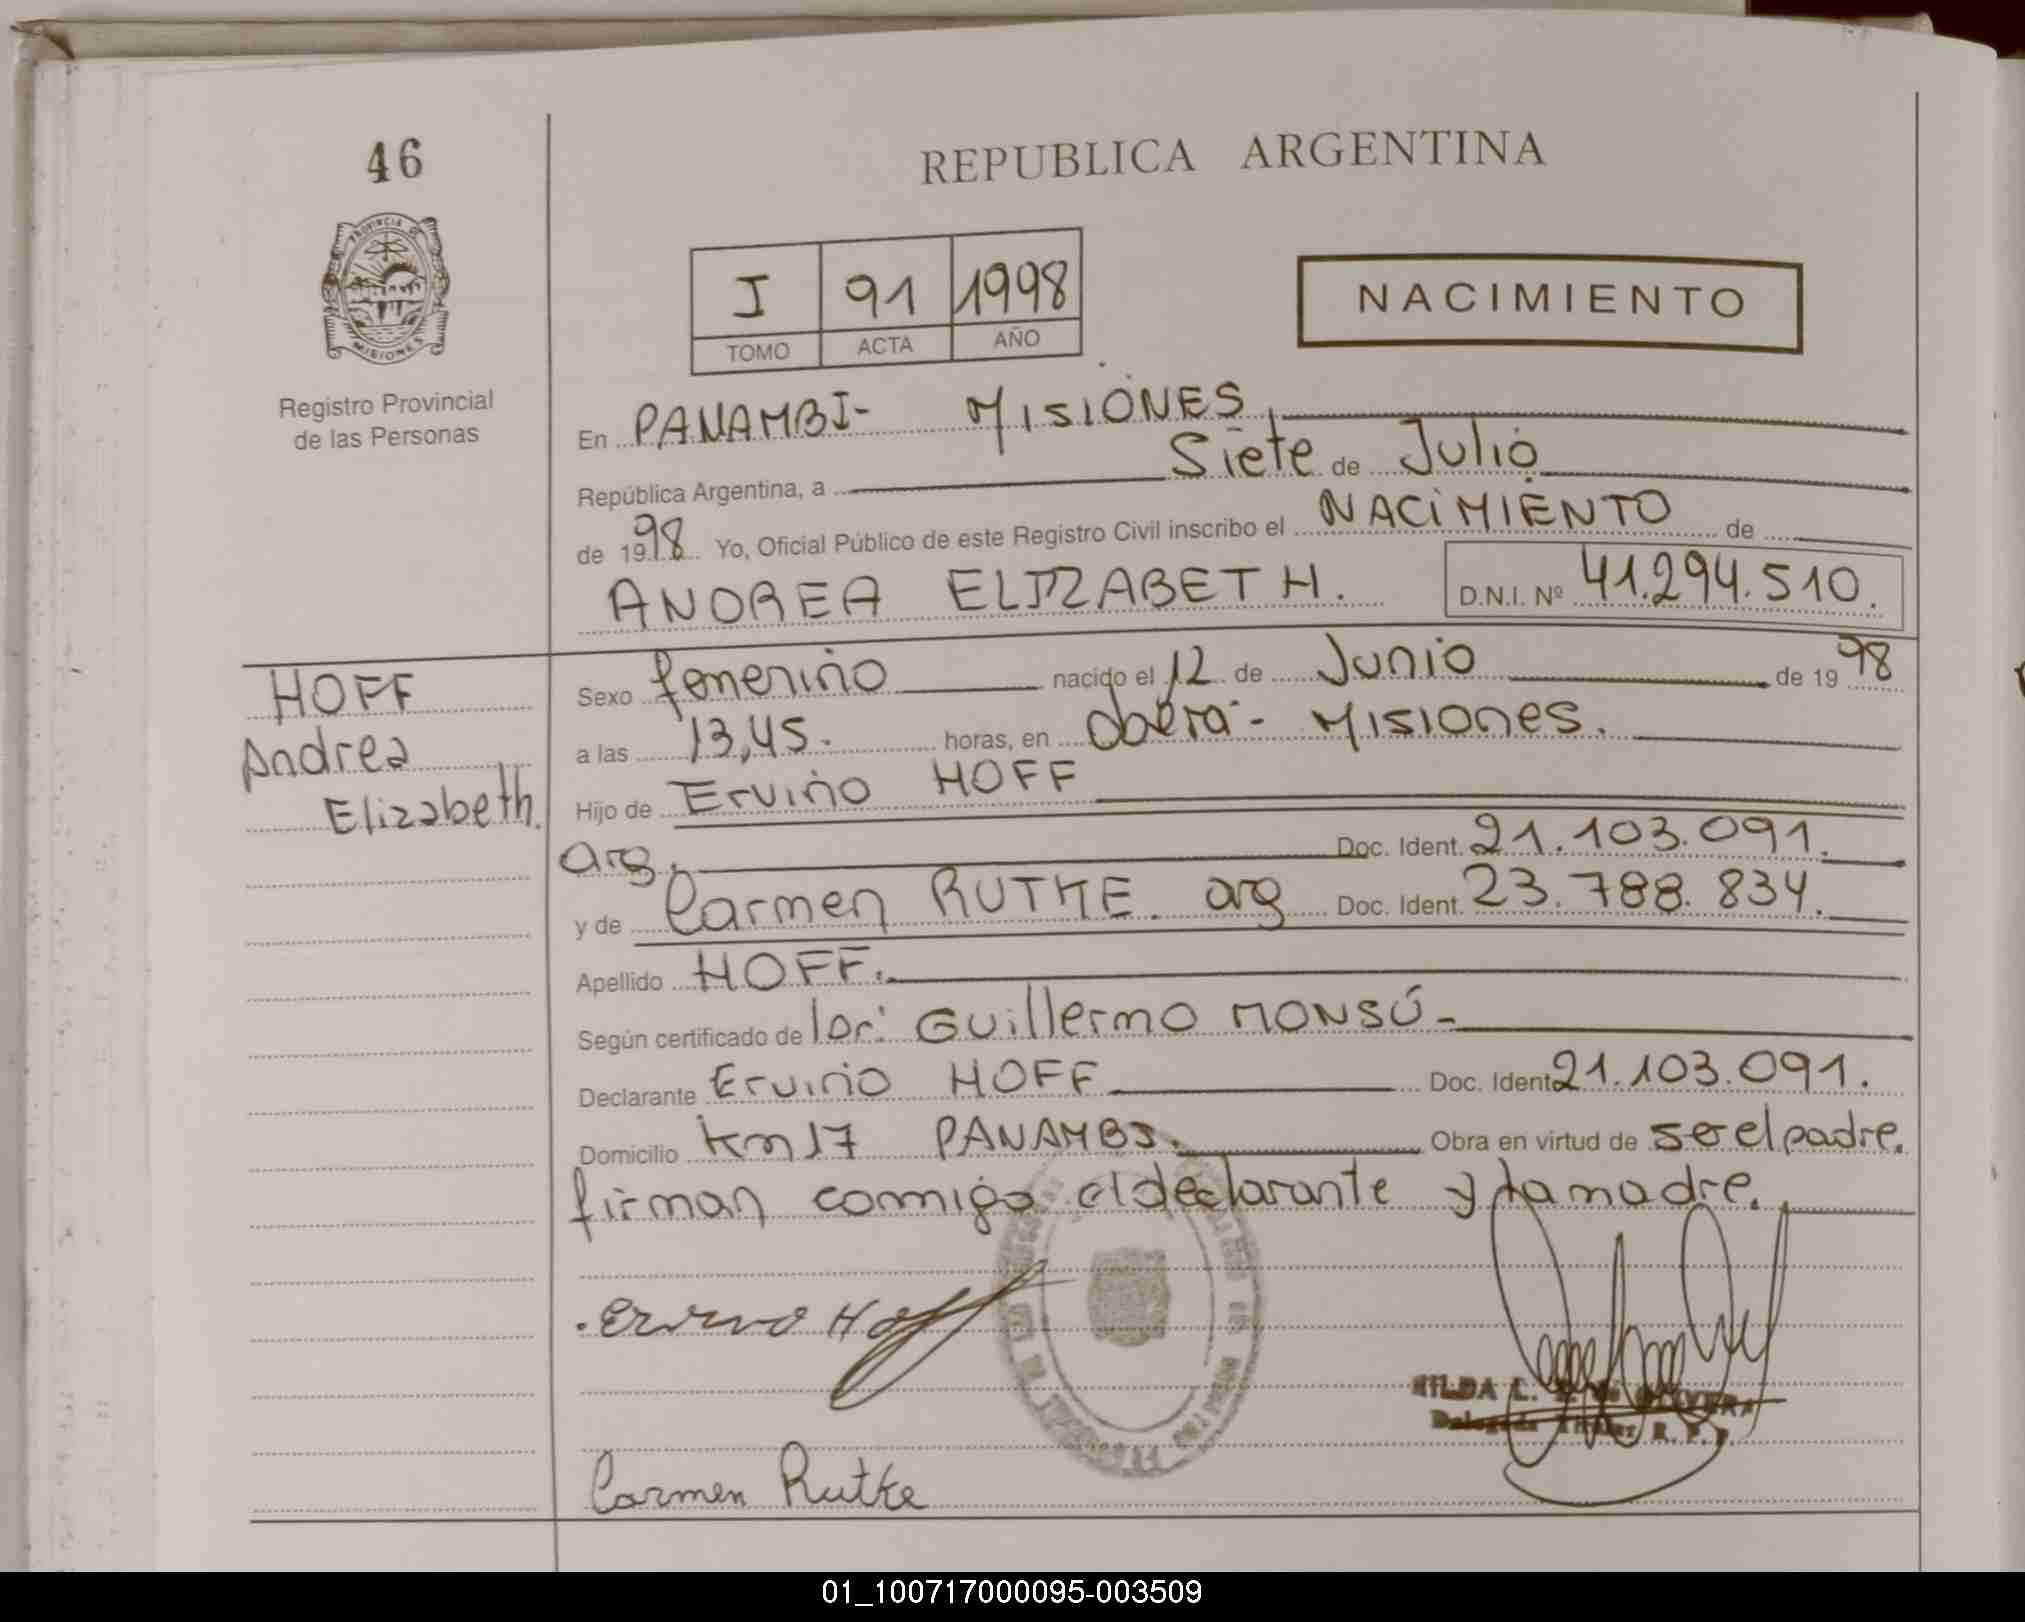 46
REPUBLICA ARGENTINA
PROVINCIA DE
MISIONES
I 91 1998
TOMO ACTA AÑO
NACIMIENTO
Registro Provincial
de las Personas
En PANAMBI- MISIONES,
República Argentina, a Siete de Julio
de 1998 Yo, Oficial Público de este Registro Civil inscribo el NACIMIENTO de
ANDREA ELIZABETH. D.N.I. Nº 41.294.510.
HOFF
Andrea
Elizabeth.
Sexo femenino nacido el 12 de Junio de 1998
a las 13,45. horas, en Oberá- Misiones.
Hijo de Ervino HOFF
arg. Doc. Ident. 21.103.091.
y de Carmen RUTKE. arg Doc. Ident. 23.788.834.
Apellido HOFF.
Según certificado de Guillermo MONSÚ-
Declarante Ervino HOFF Doc. Ident 21.103.091.
Domicilio km 17 PANAMBI. Obra en virtud de ser el padre.
firman conmigo el declarante y la madre.
Ervino Hoff
HILDA L. OLIVERA
Delegada Titular R. P. P.
Carmen Rutke
01_100717000095-003509